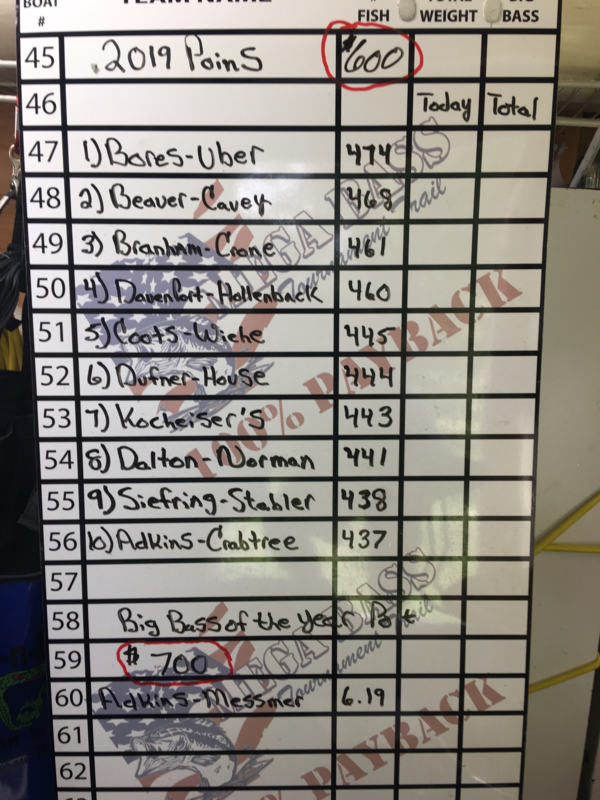 BOAT TEAM NAME # TOTAL BIG
# FISH WEIGHT BASS
45 .2019 PoinS $600
46 Today Total
47 1) Bores-Uber 474
48 2) Beaver-Cavey 468
49 3) Branham-Crane 461
50 4) Davenport-Hollenback 460
51 5) Coots-Wiehe 445
52 6) Dufner-House 444
53 7) Kocheiser's 443
54 8) Dalton-Norman 441
55 9) Siefring-Stabler 438
56 10) Adkins-Crabtree 437
57
58 Big Bass of the year Pot
59 $ 700
60 Adkins-Messmer 6.19
61
62
MEGA BASS
Tournament Trail
100% PAYBACK
MEGA BASS
Tournament Trail
100% PAYBACK